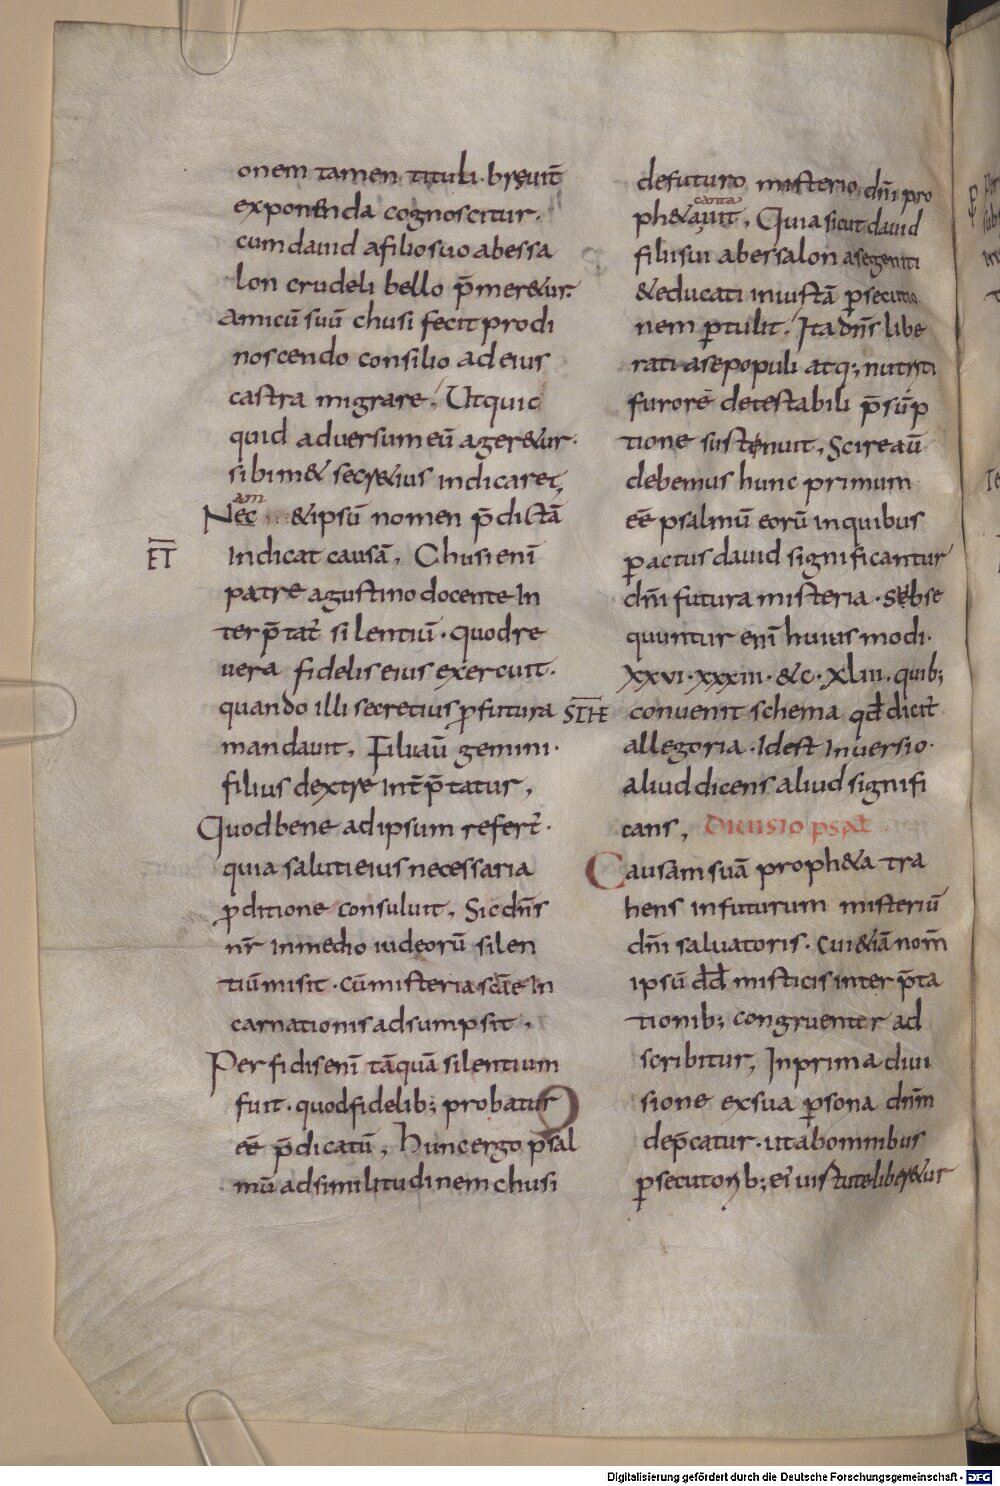 onem tamen tituli · breuit̄
exponenda cognoscitur ·
cum dauid afilio suo abessa
lon crudeli bello p̄mer&ur ·
Amicū suū chusi fecit prodi
noscendo consilio ad eius
castra migrare, Utquic
quid aduersum eū ager&ur ·
sibim& secr&ius indicaret,
am
Nec &ipsū nomen p̄dictā
ET̄
indicat causā, Chusi enī
patre agustino docente In
terp̄tat̄ silentiū · quodre
uera fidelis eius exercuit ·
quando illi secretius ꝓfutura
mandauit, Filiuaū gemini ·
filius dextre int̄p̄tatur,
Quod bene ad ipsum refert̄ ·
quia saluti eius necessaria
ꝓditione consuluit, Sic dn̄s
nr̄ in medio iudeorū silen
tiū misit · cū misteria scāe In
carnationis adsumpsit,
Perfidis enī tāquā silentium
fuit · quod fidelib; probatur
eē p̄dicatū, Hunc ergo psal
mū ad similitudinem chusi
defuturo misterio dn̄i pro
canta
ph&auit, Quia sicut dauid
filii sui abessalon asegeniti
&educati iniustā ꝑsecutio
nem ꝑtulit, Ita dn̄s libe
rati asepopuli atq; nutriti
furorē detestabili p̄sūp
tione sustenuit, Scire aū
debemus hunc primum
eē psalmū eorū inquibus
ꝑ actus dauid significantur
dn̄i futura misteria · Subse
quuntur enī huius modi ·
XXVI · XXXIII · &c · XLIII · quib;
SCHE
conuenit schema qđ dicit̄
allegoria · Idest Inuersio ·
aliud dicens aliud signifi
cans, Diuisio psal̄
Causam suā proph&a tra
hens infuturum misteriū
dn̄i saluatoris · cui &iā nom̄
ipsū dd̄ misticis interp̄ta
tionib; congruenter ad
scribitur, In prima diui
sione exsua ꝑsona dn̄m
dep̄catur · ut abomnibus
ꝑsecutorib; ei' uirtute liber&ur